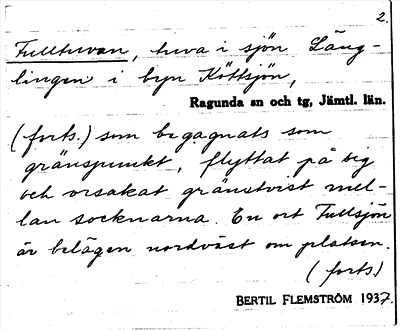 2.
Fulltuvan, tuva i sjön Läng-
lingen i byn Köttsjön,
Ragunda sn och tg, Jämtl. län.
(forts.) som begagnats som
gränspunkt, flyttat på sig
och orsakat gränstvist mel-
lan socknarna. En ort Fullsjön
är belägen nordväst om platsen.
(forts)
BERTIL FLEMSTRÖM 1937.